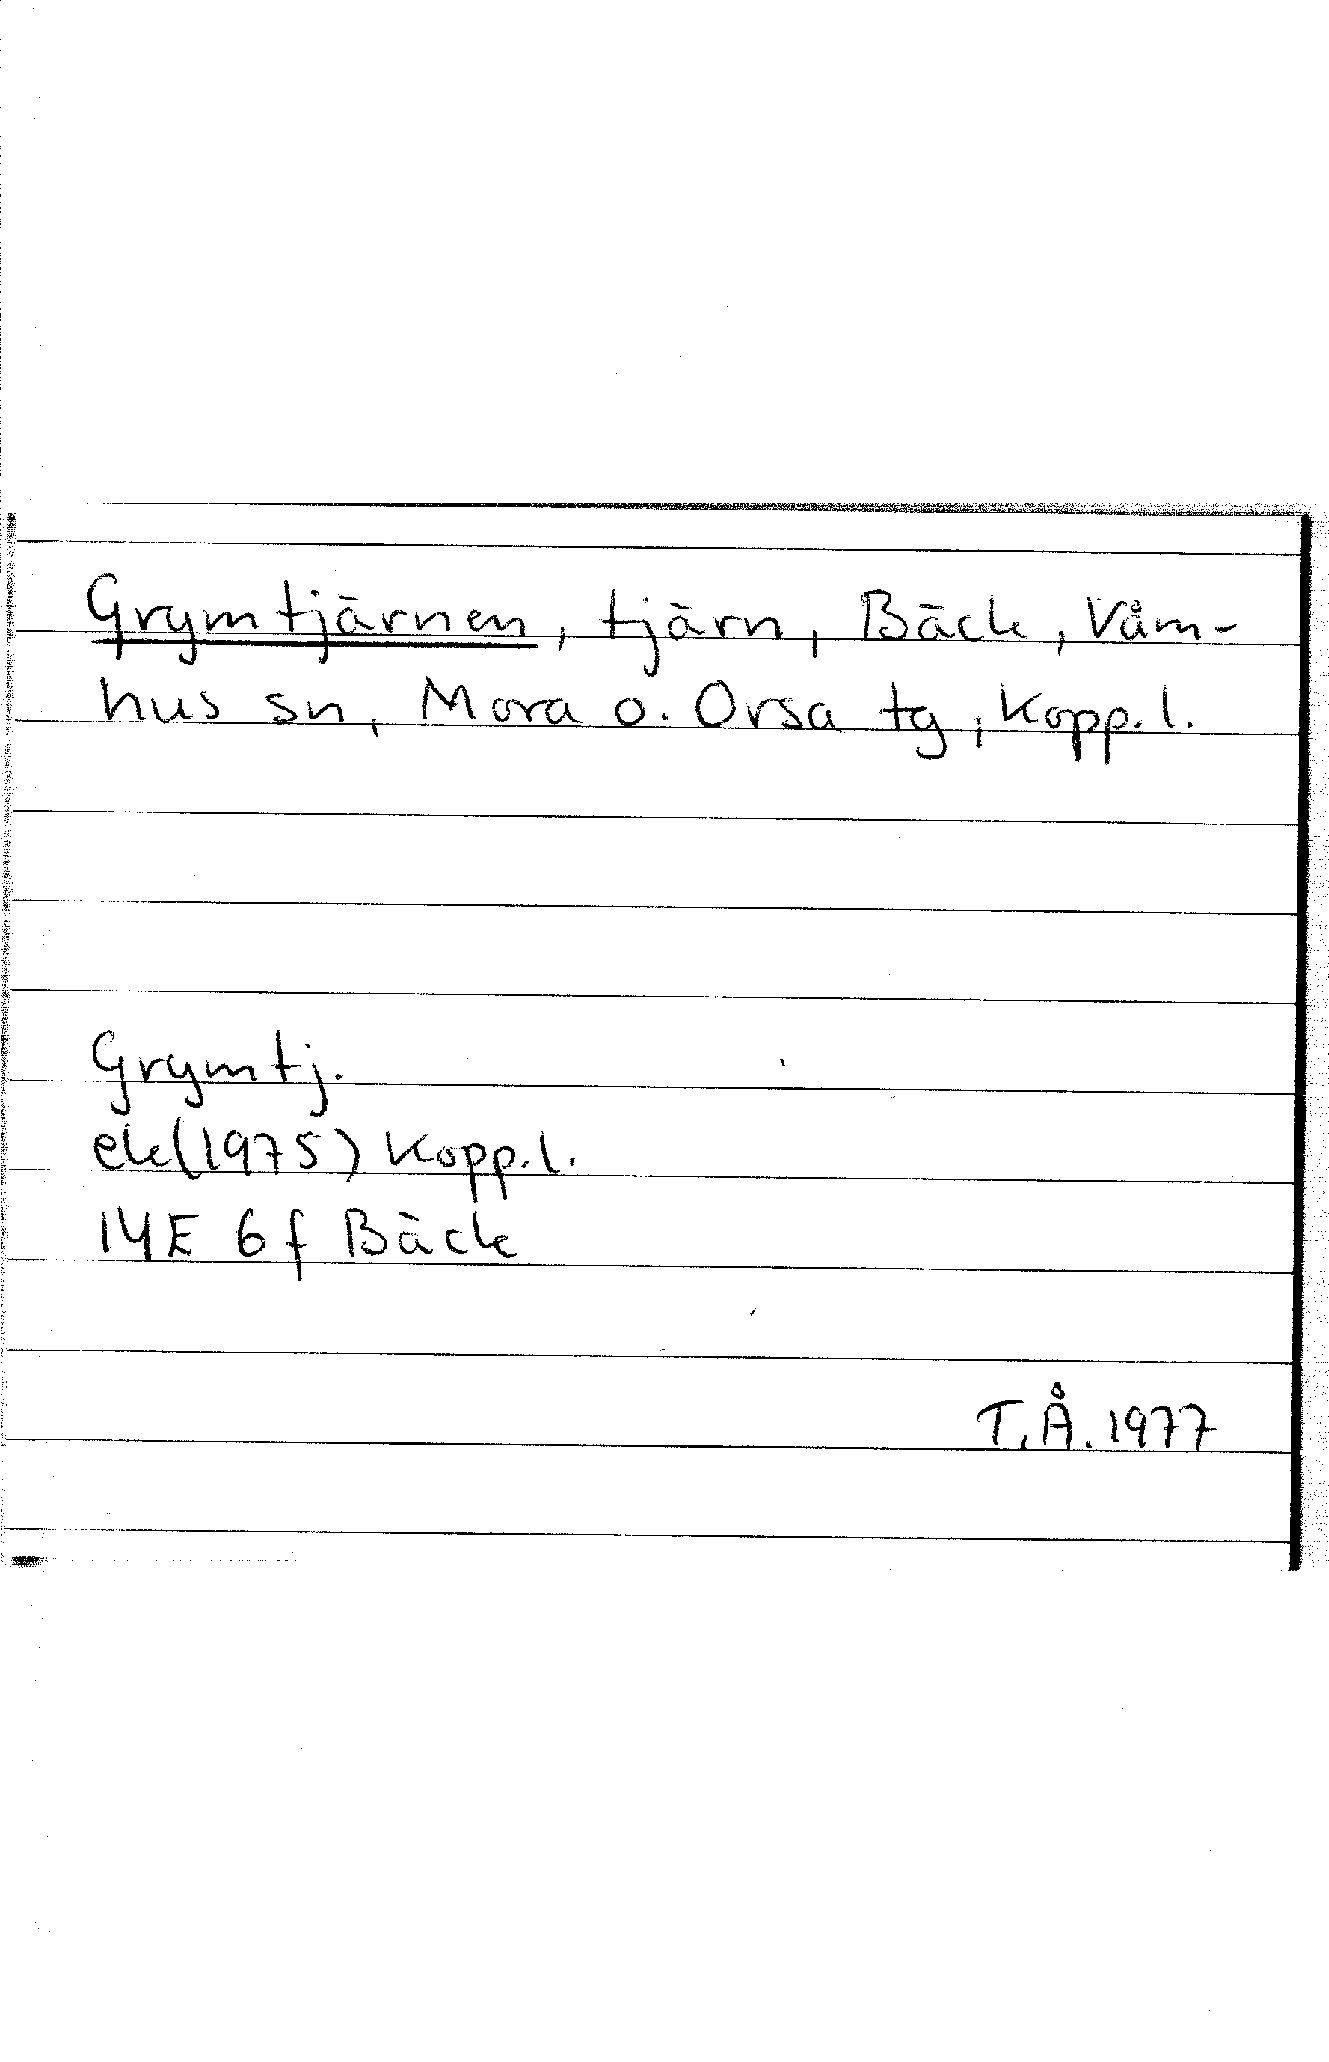 Grymtjärnen, tjärn, Bäck, Våm-
hus sn, Mora o. Orsa tg, Kopp. l.
Grymtj.
ek(1975) Kopp. l.
14E 6f Bäck
T.Å. 1977